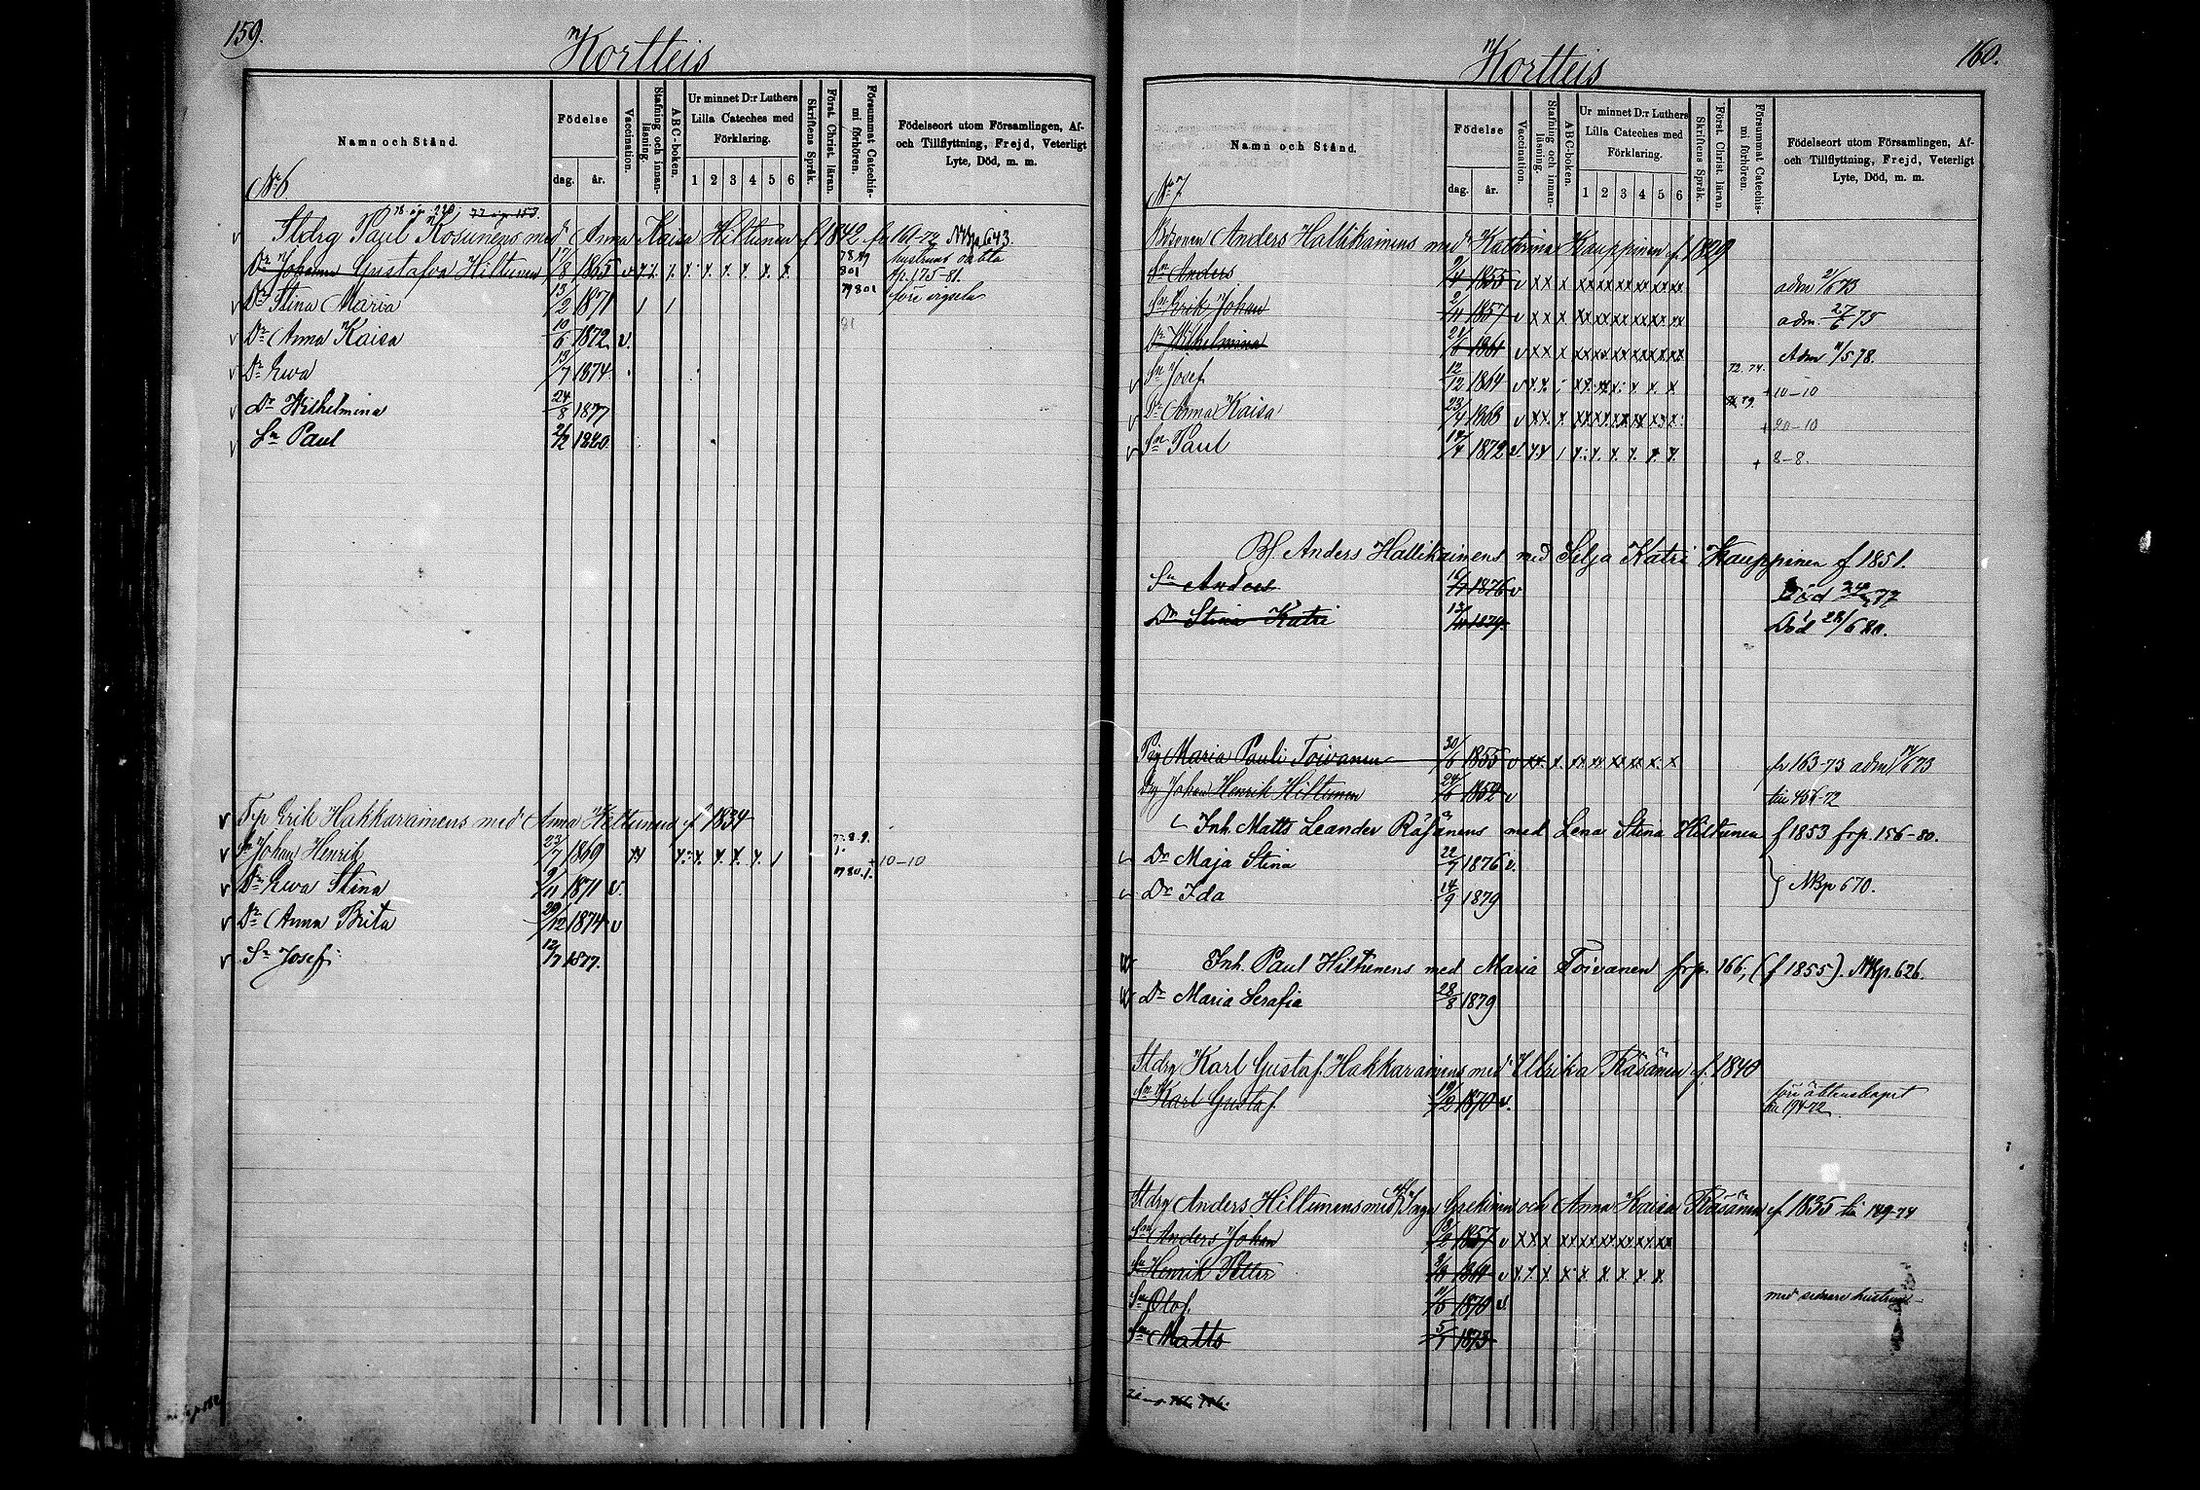 159.
Kortteis
Namn och Stånd.
Födelse
dag.
år.
Vaccination.
Stafning och innan-läsning.
ABC-boken.
Ur minnet D:r Luthers Lilla Cateches med Förklaring.
1 2 3 4 5 6
Skriftens Språk.
Först. Christ. läran.
Försummat Catechis-mi förhören.
Födelseort utom Församlingen, Af-
och Tillflyttning, Frejd, Veterligt
Lyte, Död, m. m.
No 6.
Stdrg Paul Kosunens med Anna Kaisa Hiltunen f 1842 fr 161-72 NKp 643.
Dr Johanna Gustafva Hiltunen 17/8 1865 hustruns oäkta
p. 175-81.
Dr Stina Maria 13/2 1871 före vigseln
Dr Anna Kaisa 10/6 1872 v.
Dr Ewa 13/7 1874
Dr Wilhelmina 24/8 1877
Sn Paul 21/2 1880.
Trp Erik Hakkarainens med Anna Hiltunen f 1834
Sn Johan Henrik 23/7 1869 10-10
Dr Ewa Stina 9/11 1871 v.
Dr Anna Brita 29/12 1874 v
Sn Josef 12/7 1877.
160.
Kortteis
Namn och Stånd.
Födelse
dag.
år.
Vaccination.
Stafning och innan-läsning.
ABC-boken.
Ur minnet D:r Luthers Lilla Cateches med Förklaring.
1 2 3 4 5 6
Skriftens Språk.
Först. Christ. läran.
Försummat Catechis-mi förhören.
Födelseort utom Församlingen, Af-
och Tillflyttning, Frejd, Veterligt
Lyte, Död, m. m.
No 7.
Anders Hallikainens med Kathrina Kauppinen f. 1829
Sn Anders 9/4 1855 v adm 2/6 73
Sn Erik Johan 2/11 1857 v adm. 27/6 75
Dr Wilhelmina 21/6 1861 v Adm 11/5 78.
Sn Josef 12/12 1864 v 72. 74. 10-10
Dr Anna Kaisa 23/4 1868 v 79. 20-10
Sn Paul 17/4 1872 v 8-8.
Bf Anders Hallikainens med Silja Katri Kauppinen f 1851.
Sn Anders 1876 v Död 77
Dr Stina Katri 1879. Död 28/6 80.
Pig Maria Pauli Toivanen 30/6 1855 v fr 163-73 adm 73
Drg Johan Henrik Hiltunen 24/6 1852 v till 456-72
Inh Matts Leander Räsänens med Lena Stina Hiltunen f 1853 frp. 156-80.
Dr Maja Stina 22/7 1876 v.
NKp 670.
Dr Ida 14/9 1879
Inh. Paul Hiltunens med Maria Toivanen frp. 166, (f 1855). NKp. 626.
Dr Maria Serafia 28/8 1879
Stdrg Karl Gustaf Hakkarainens med Ulrika Räsänen f. 1840
Sn Karl Gustaf 19/2 1870 v. före äktenskapet
till 194-72
Stdrg Anders Hiltunens med Inga och Anna Kaisa Räsänen f 1835 till 149-74
Sn Anders Johan 1857 v
Sn Henrik Petter 9/8 1861 v
Sn Olof 11/5 1870 v med senare hustrun
Sn Matts 5/1 1873